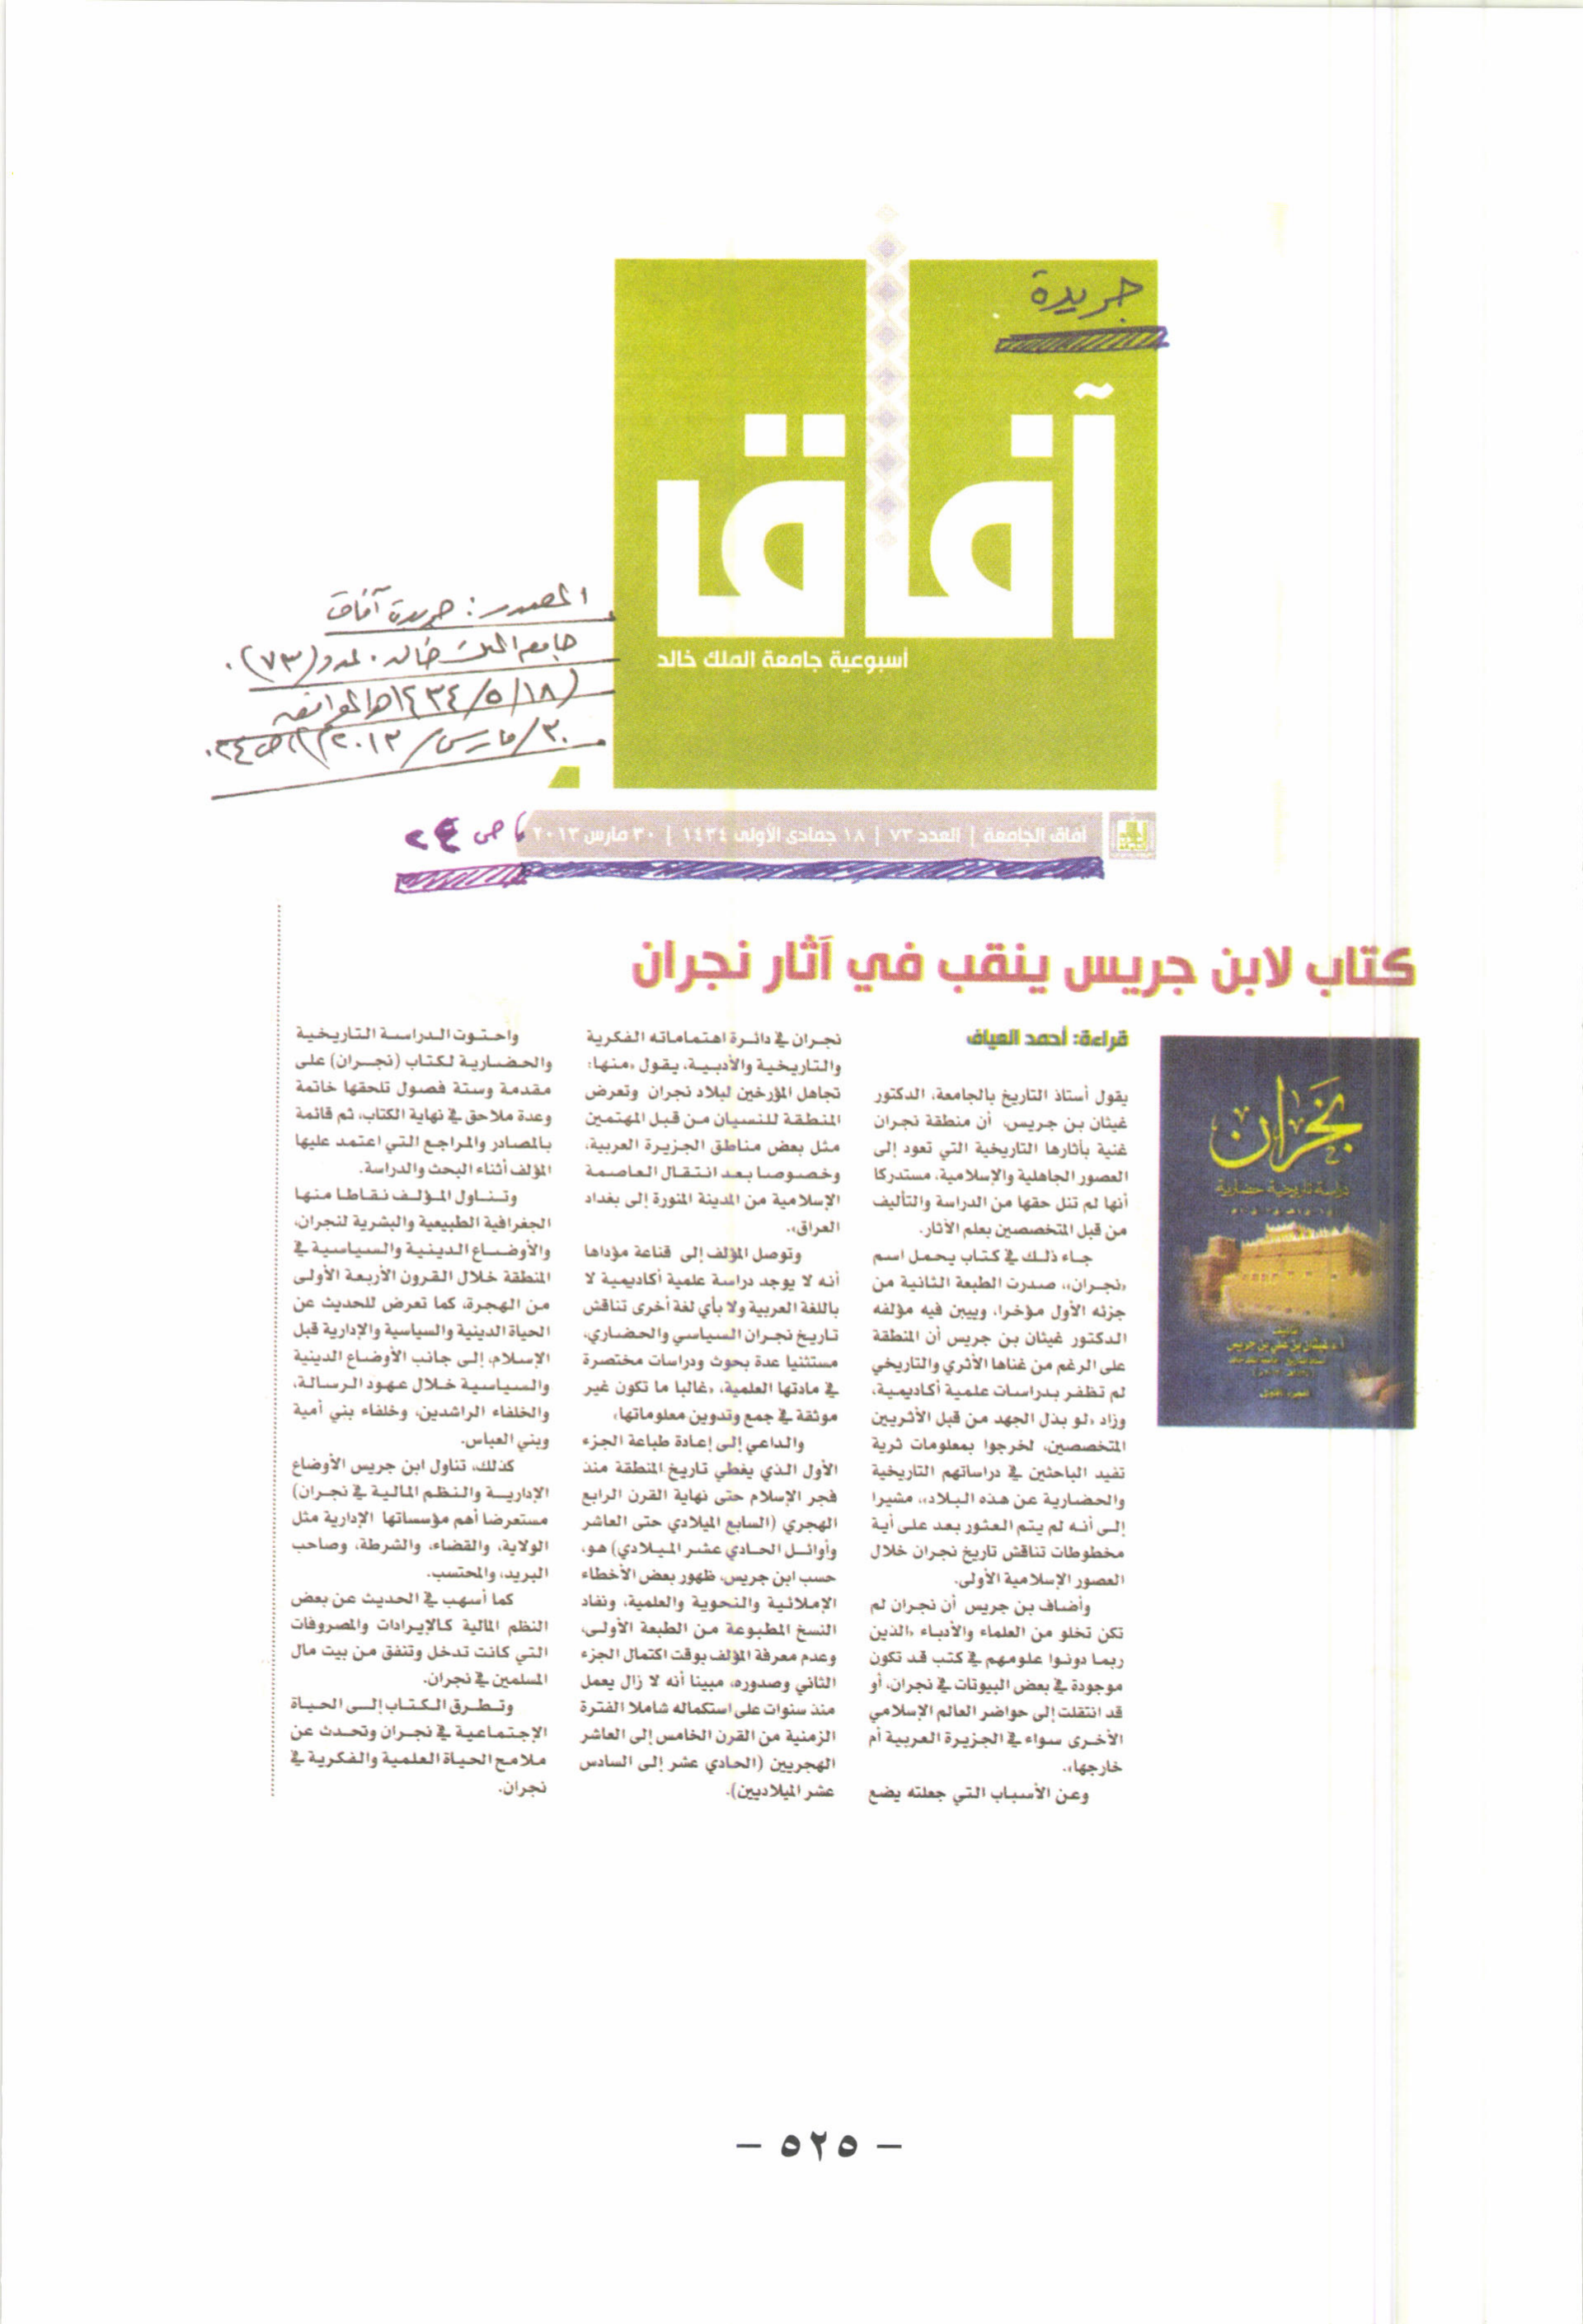 جريدة
آفاق
أسبوعية جامعة الملك خالد
المصدر: جريدة آفاق
جامعة الملك خالد. لعدد (٧٣).
(١٤٣٤/٥/١٨هـ الموافق
٣٠/مارس/٢٠١٣م) ص٢٤.
آفاق الجامعة | العدد ٧٣ | ١٨ جمادى الأولى ١٤٣٤ | ٣٠ مارس ٢٠١٣
ص ٢٤
كتاب لابن جريس ينقب في آثار نجران
نجران
دراسة تاريخية حضارية
تأليف
أ.د. غيثان بن علي بن جريس
الجزء الأول
قراءة: أحمد العياف
يقول أستاذ التاريخ بالجامعة، الدكتور
غيثان بن جريس، أن منطقة نجران
غنية بآثارها التاريخية التي تعود إلى
العصور الجاهلية والإسلامية، مستدركا
أنها لم تنل حقها من الدراسة والتأليف
من قبل المتخصصين بعلم الآثار.
جاء ذلك في كتاب يحمل اسم
«نجران»، صدرت الطبعة الثانية من
جزئه الأول مؤخرا، ويبين فيه مؤلفه
الدكتور غيثان بن جريس أن المنطقة
على الرغم من غناها الأثري والتاريخي
لم تظفر بدراسات علمية أكاديمية،
وزاد «لو بذل الجهد من قبل الأثريين
المتخصصين، لخرجوا بمعلومات ثرية
تفيد الباحثين في دراساتهم التاريخية
والحضارية عن هذه البلاد»، مشيرا
إلى أنه لم يتم العثور بعد على أية
مخطوطات تناقش تاريخ نجران خلال
العصور الإسلامية الأولى.
وأضاف بن جريس أن نجران لم
تكن تخلو من العلماء والأدباء «الذين
ربما دونوا علومهم في كتب قد تكون
موجودة في بعض البيوتات في نجران، أو
قد انتقلت إلى حواضر العالم الإسلامي
الأخرى سواء في الجزيرة العربية أم
خارجها».
وعن الأسباب التي جعلته يضع
نجران في دائرة اهتماماته الفكرية
والتاريخية والأدبية، يقول «منها:
تجاهل المؤرخين لبلاد نجران وتعرض
المنطقة للنسيان من قبل المهتمين
مثل بعض مناطق الجزيرة العربية،
وخصوصا بعد انتقال العاصمة
الإسلامية من المدينة المنورة إلى بغداد
العراق».
وتوصل المؤلف إلى قناعة مؤداها
أنه لا يوجد دراسة علمية أكاديمية لا
باللغة العربية ولا بأي لغة أخرى تناقش
تاريخ نجران السياسي والحضاري،
مستثنيا عدة بحوث ودراسات مختصرة
في مادتها العلمية، «غالبا ما تكون غير
موثقة في جمع وتدوين معلوماتها»
والداعي إلى إعادة طباعة الجزء
الأول الذي يغطي تاريخ المنطقة منذ
فجر الإسلام حتى نهاية القرن الرابع
الهجري (السابع الميلادي حتى العاشر
وأوائل الحادي عشر الميلادي) هو،
حسب ابن جريس، ظهور بعض الأخطاء
الإملائية والنحوية والعلمية، ونفاد
النسخ المطبوعة من الطبعة الأولى،
وعدم معرفة المؤلف بوقت اكتمال الجزء
الثاني وصدوره، مبينا أنه لا زال يعمل
منذ سنوات على استكماله شاملا الفترة
الزمنية من القرن الخامس إلى العاشر
الهجريين (الحادي عشر إلى السادس
عشر الميلاديين).
واحتوت الدراسة التاريخية
والحضارية لكتاب (نجران) على
مقدمة وستة فصول تلحقها خاتمة
وعدة ملاحق في نهاية الكتاب، ثم قائمة
بالمصادر والمراجع التي اعتمد عليها
المؤلف أثناء البحث والدراسة.
وتناول المؤلف نقاطا منها
الجغرافية الطبيعية والبشرية لنجران،
والأوضاع الدينية والسياسية في
المنطقة خلال القرون الأربعة الأولى
من الهجرة، كما تعرض للحديث عن
الحياة الدينية والسياسية والإدارية قبل
الإسلام، إلى جانب الأوضاع الدينية
والسياسية خلال عهود الرسالة،
والخلفاء الراشدين، وخلفاء بني أمية
وبني العباس.
كذلك، تناول ابن جريس الأوضاع
الإدارية والنظم المالية في نجران)
مستعرضا أهم مؤسساتها الإدارية مثل
الولاية، والقضاء، والشرطة، وصاحب
البريد، والمحتسب.
كما أسهب في الحديث عن بعض
النظم المالية كالإيرادات والمصروفات
التي كانت تدخل وتنفق من بيت مال
المسلمين في نجران.
وتطرق الكتاب إلى الحياة
الإجتماعية في نجران وتحدث عن
ملامح الحياة العلمية والفكرية في
نجران.
- ٥٢٥ -